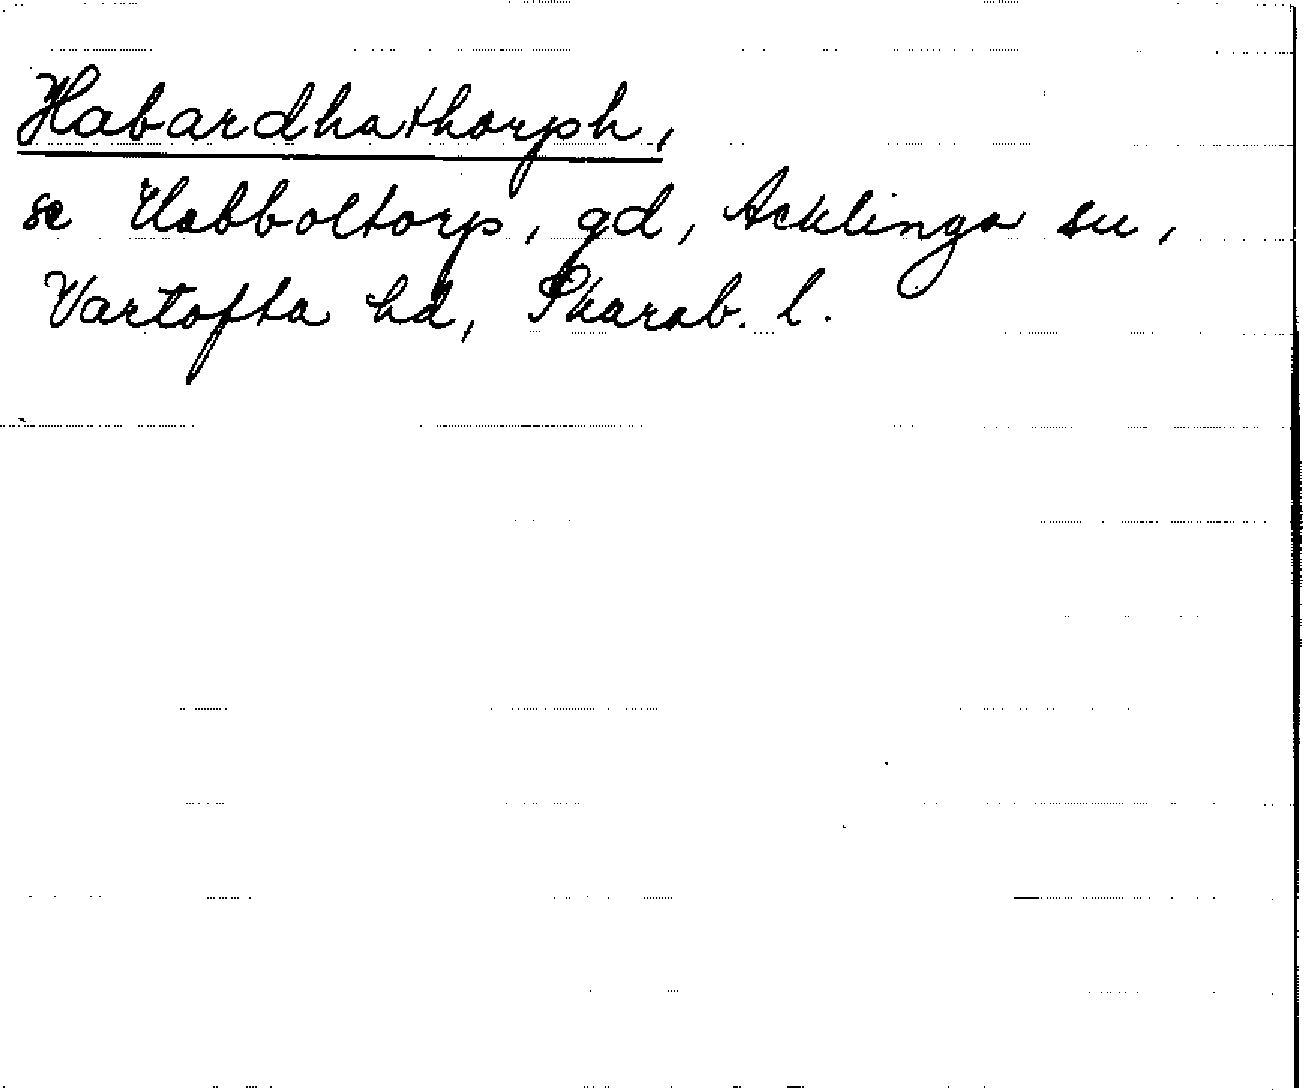 Habardhathorph,
se Habboltorp, gd, Acklinga sn,
Vartofta hd, Skarab. l.